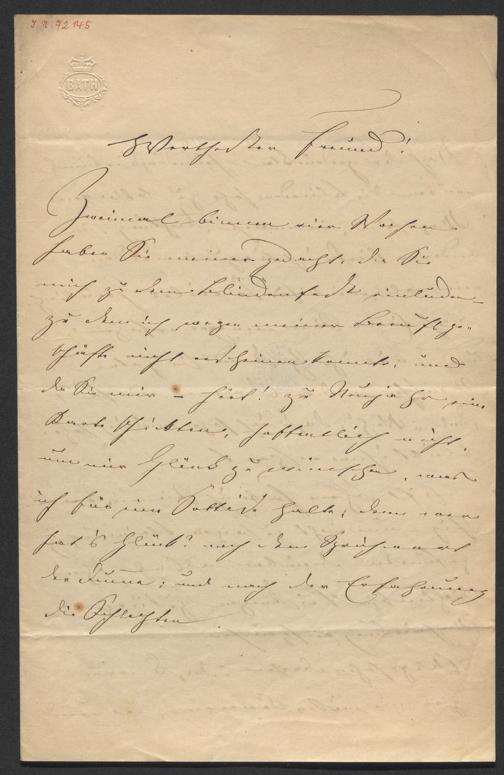 I. N. 72145
BATH
Werthester Freund!
Zweimal binnen vier Wochen
haben Sie meiner gedacht, da Sie
mich zu dem Blindenfeste einluden
zu dem ich wegen meiner Berufsge-
schäfte nicht erscheinen konnte, und
da Sie mir – hört! zu Neujahr eine
Karte schickten, hoffentlich nicht,
um mir Glück zu wünschen, was
ich für eine Sottise halte; denn wer
hat's Glück? nach dem Sprüchwort
der Dumme; und nach der Erfahrung
die Schlechten